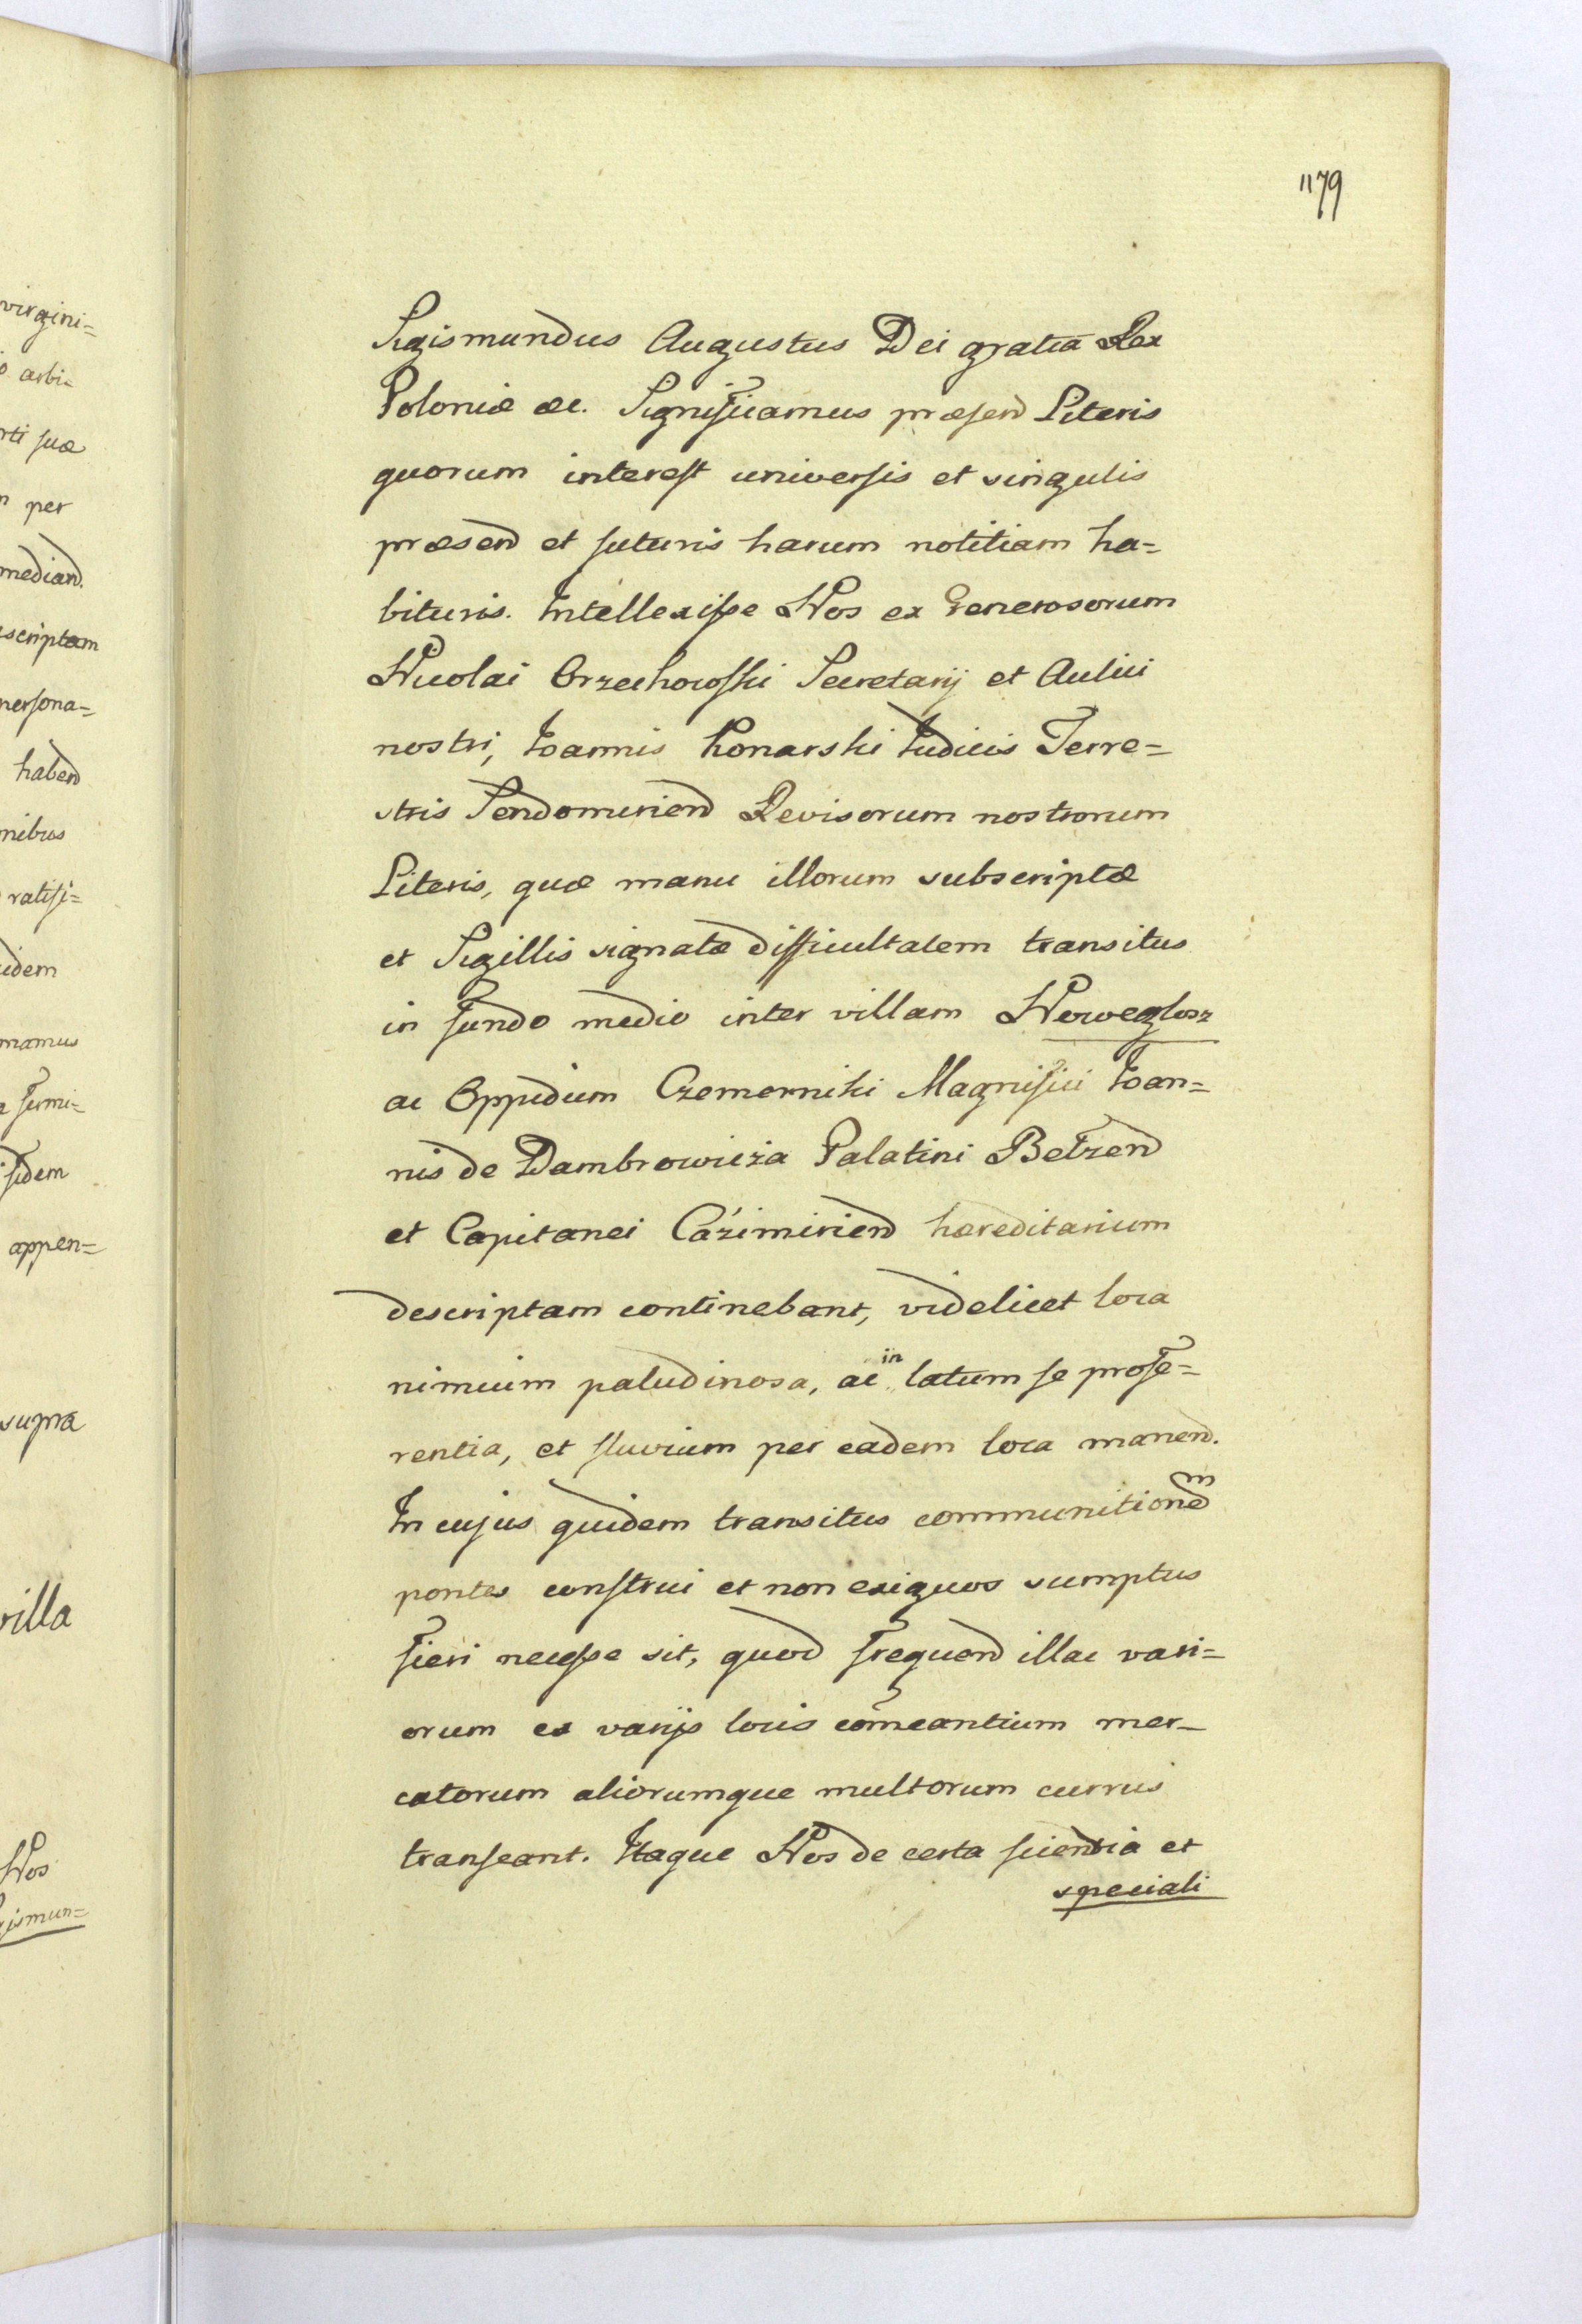 1179
Sigismundus Augustus Dei gratia Rex
Poloniæ &c. Significamus præsend Literis
quorum interest universis et singulis
præsend et futuris harum notitiam ha=
bituris. Intellexisse Nos ex Generosorum
Nicolai Orzechowski Secretarij et Aulici
nostri, Joannis Konarski Judicis Terre=
stris Sendomiriend Revisorum nostrorum
Literis, quæ manu illorum subscriptæ
et Sigillis signatæ difficultatem transitus
in fundo medio inter villam Woweglosz
ac Oppidum Czemerniki Magnifici Joan=
nis de Dambrowicza Palatini Belzend
et Capitanei Cazimiriend hæreditarium
descriptam continebant, videlicet loca
nimium paludinosa, ac in latum se profe=
rentia, et fluvium per eadem loca manend.
In cujus quidem transitus communitionem
pontes construi et non exiguos sumptus
fieri necesse sit, quod frequend illac vari=
orum ex varijs locis com̃eantium mer=
catorum aliorumque multorum currus
transeant. Itaque Nos de certa scientia et
speciali
virgini=
arbi=
rti suæ
per
mediand.
scriptam
persona=
habend
nibus
ratifi=
idem
mamus
firmi=
fidem
appen=
supra
villa
Nos
gismun=